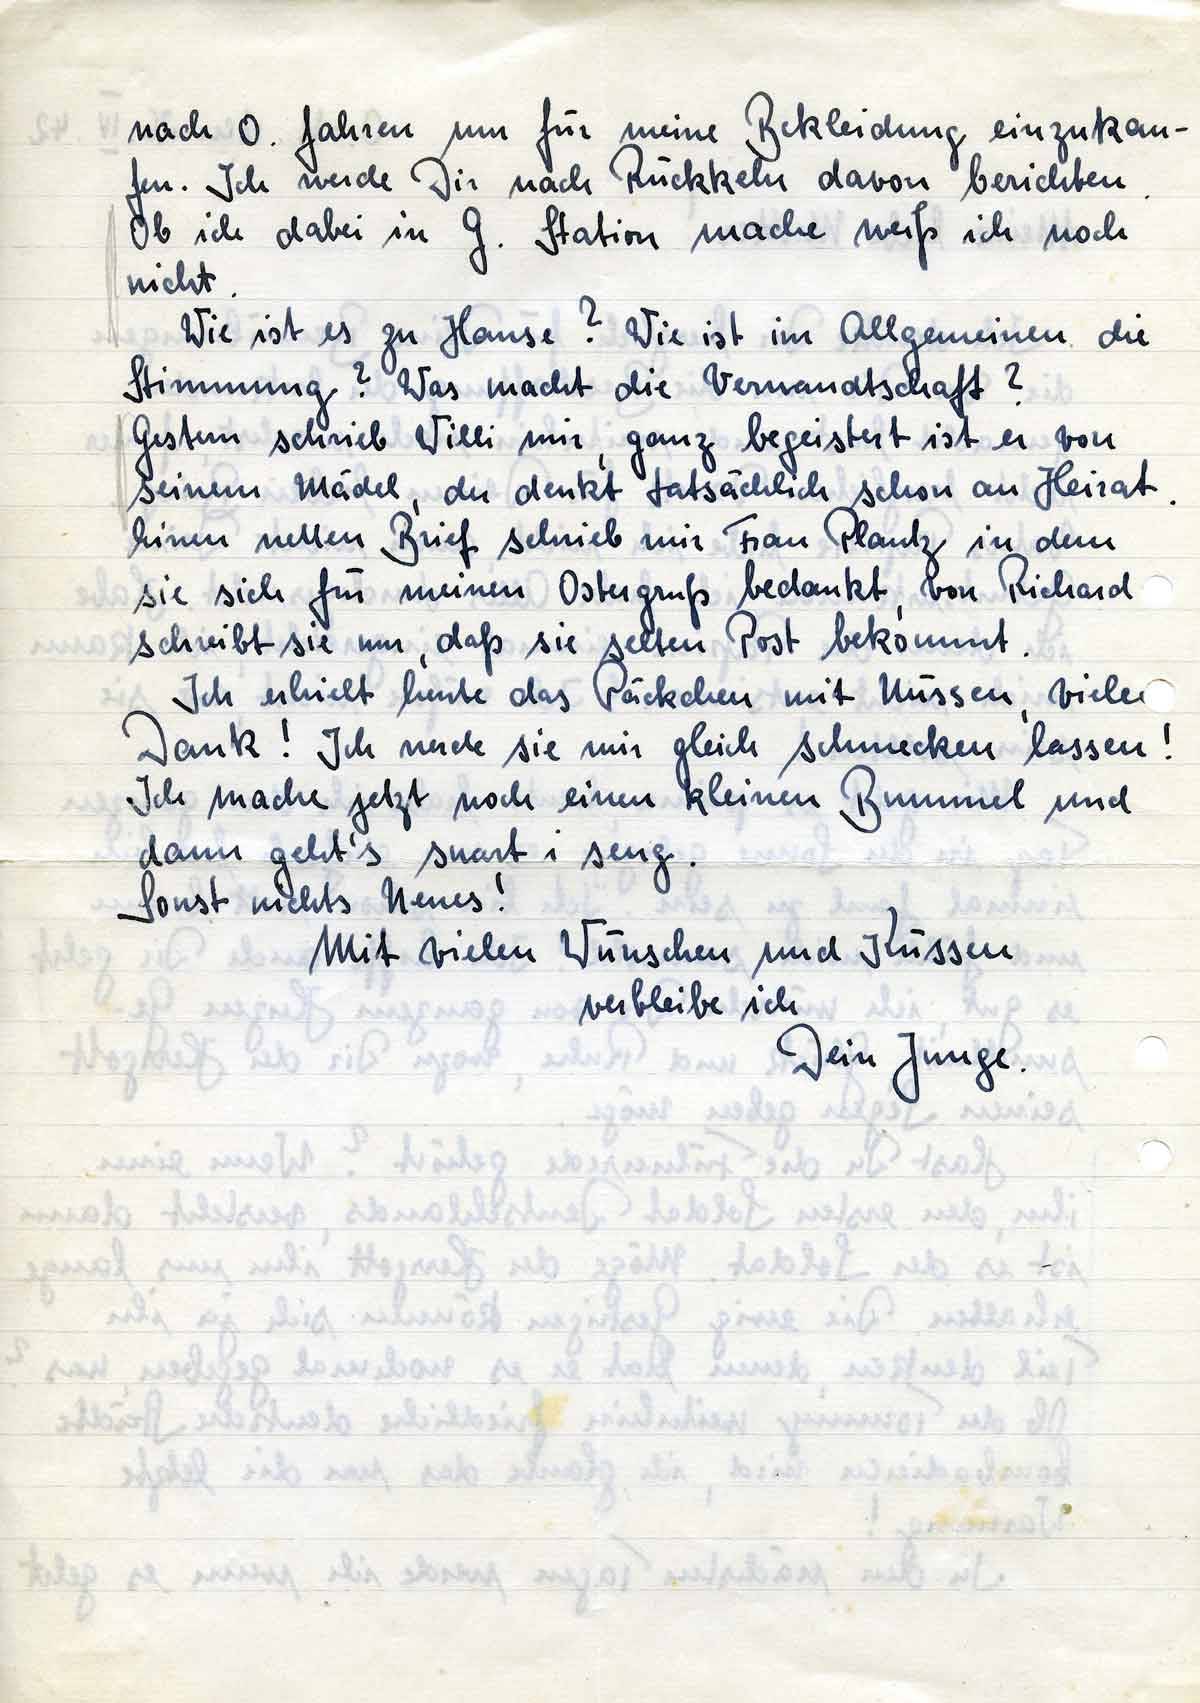 nach O. fahren um für meine Bekleidung einzukau-
fen. Ich werde Dir nach Rückkehr davon berichten.
Ob ich dabei in G. Station mache weiß ich noch
nicht.
Wie ist es zu Hause? Wie ist im Allgemeinen die
Stimmung? Was macht die Verwandtschaft?
Gestern schrieb Willi mir, ganz begeistert ist er von
seinem Mädel, der denkt tatsächlich schon an Heirat.
Einen netten Brief schrieb mir Frau Plautz in dem
sie sich für meinen Ostergruß bedankt, von Richard
schreibt sie nur, daß sie selten Post bekommt.
Ich erhielt heute das Päckchen mit Nüssen, vielen
Dank! Ich werde sie mir gleich schmecken lassen!
Ich mache jetzt noch einen kleinen Bummel und
dann geht's snart i seng.
Sonst nichts Neues!
Mit vielen Wünschen und Küssen
verbleibe ich
Dein Junge.